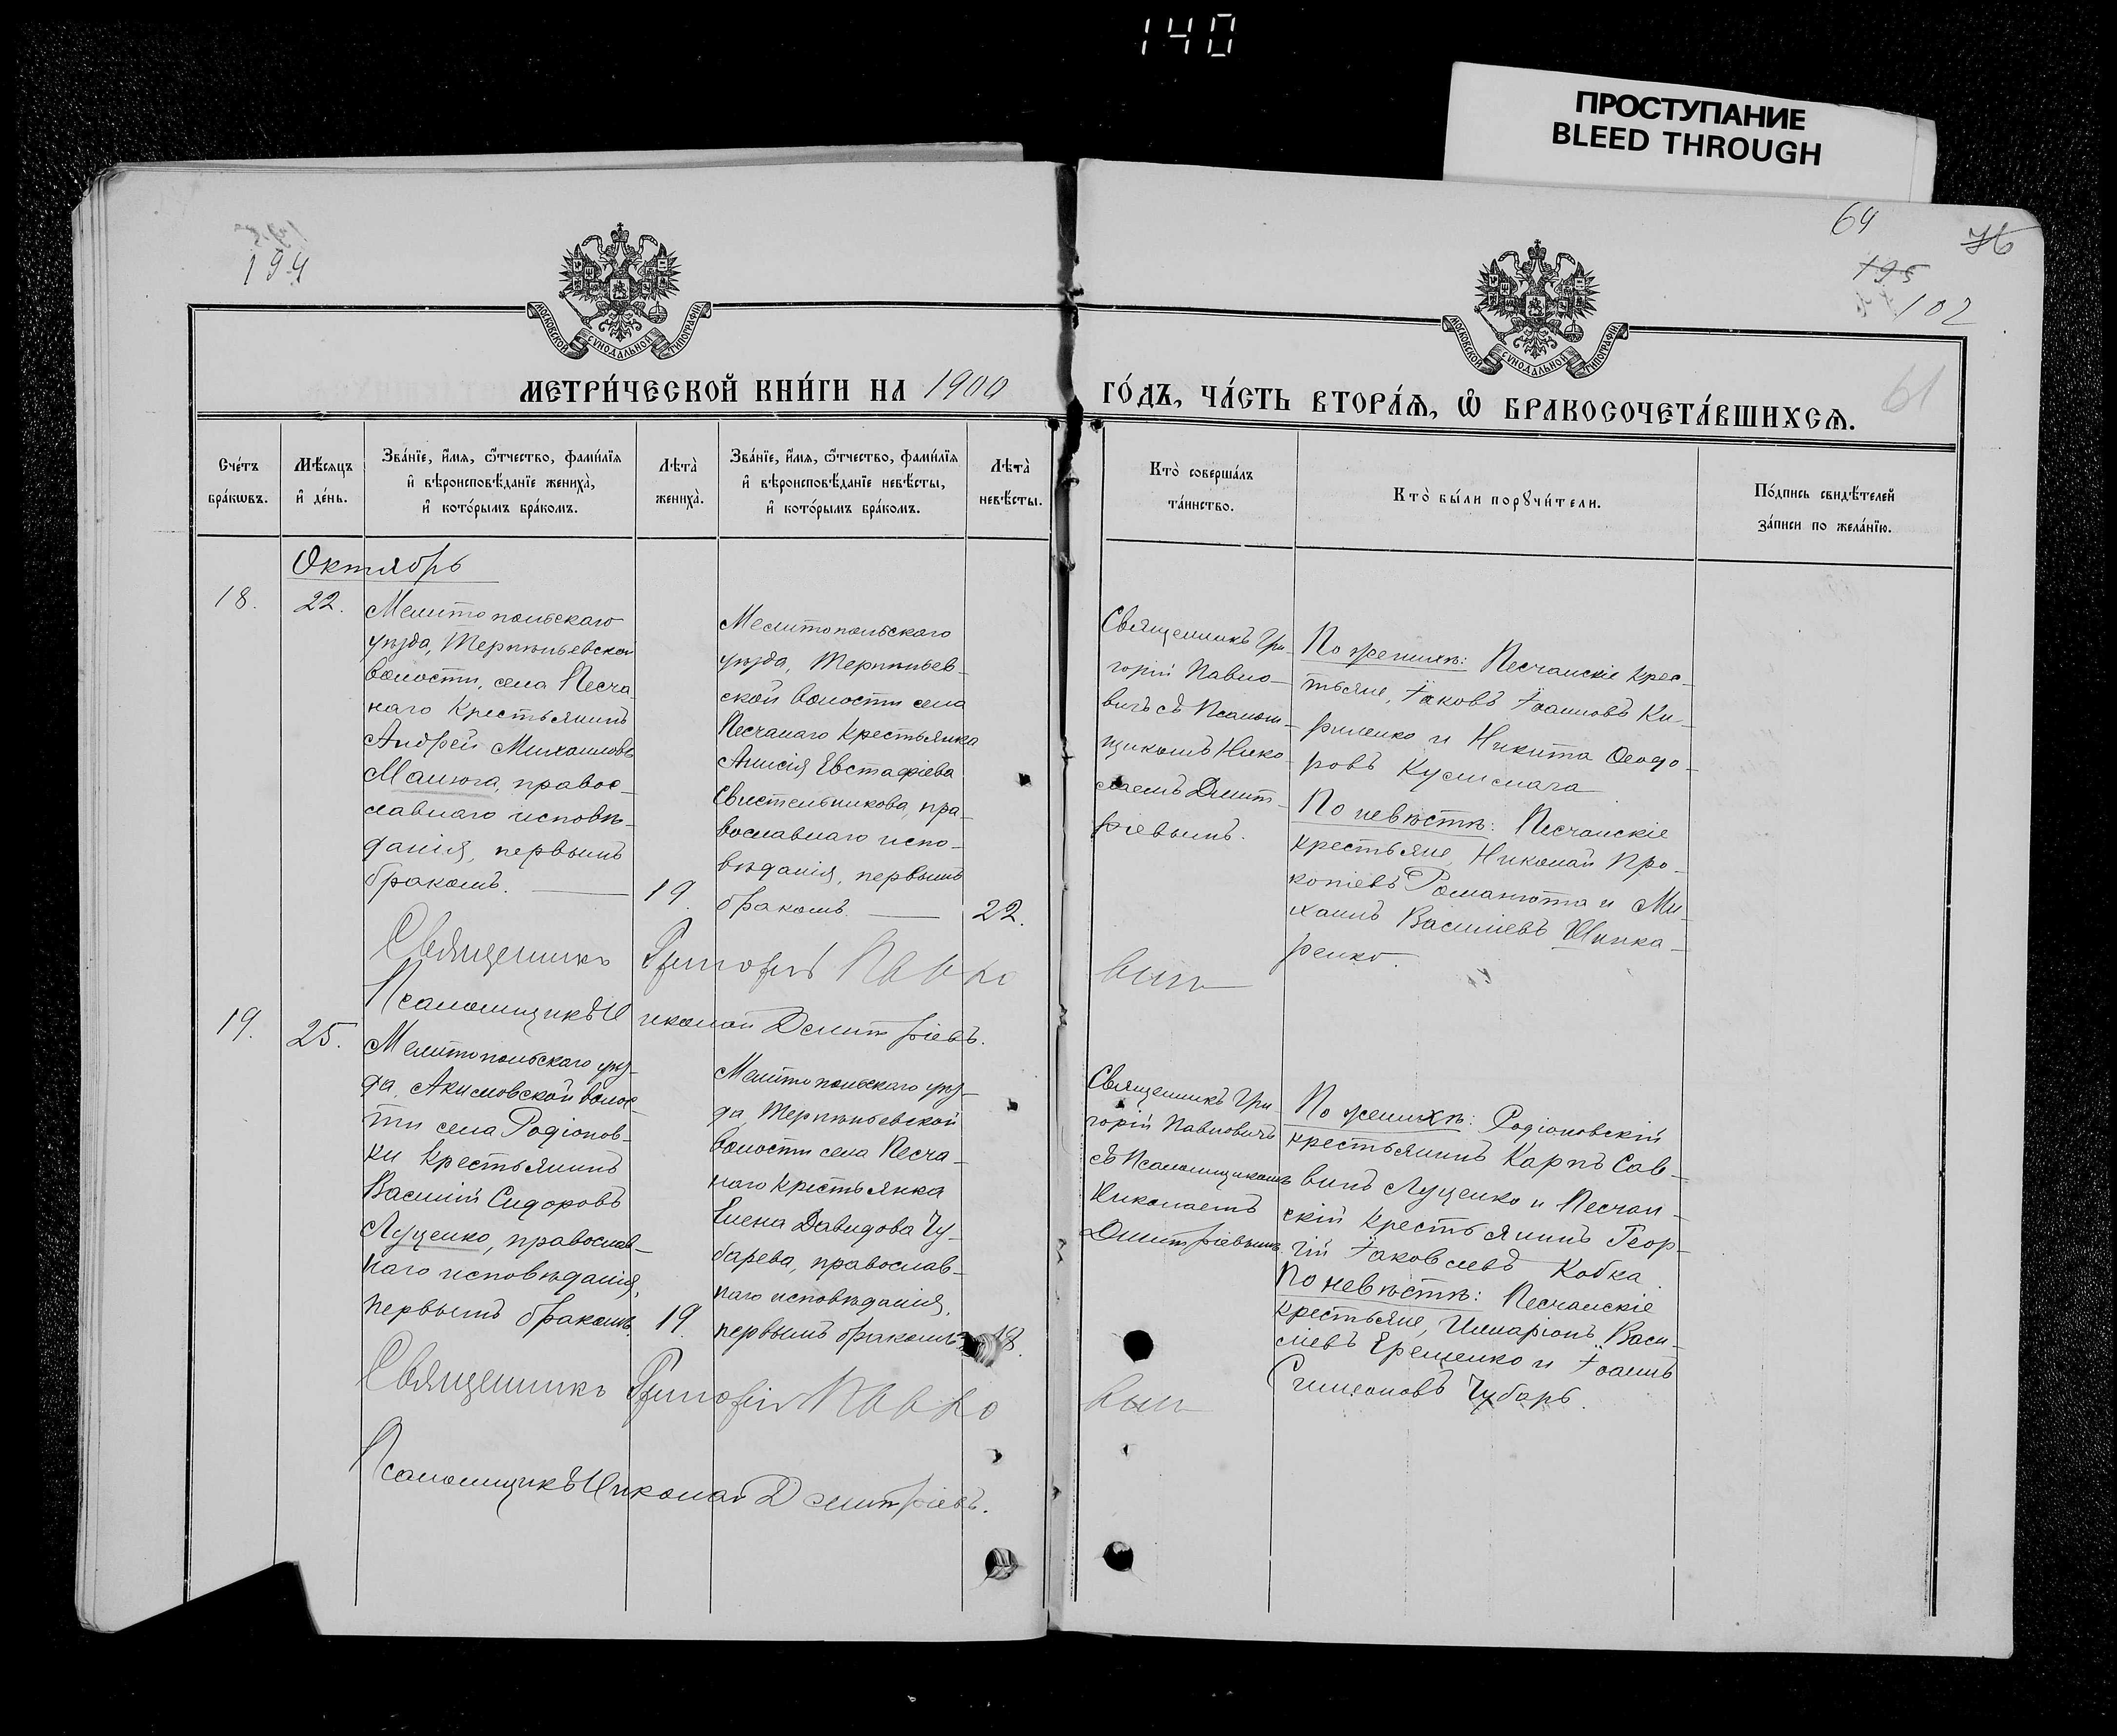 140
ПРОСТУПАНИЕ
BLEED THROUGH
194
64
76
195
102
61
МОСКОВСКОЙ СѴНОДАЛЬНОЙ ТИПОГРАФІИ
МОСКОВСКОЙ СѴНОДАЛЬНОЙ ТИПОГРАФІИ
МЕТРИ́ЧЕСКОЙ КНИ́ГИ НА 1900
ГО́ДЪ, ЧА́СТЬ ВТОРА́Ѧ, Ѽ БРАКОСОЧЕТА́ВШИХСѦ.
Сче́тъ
бра́кѡвъ.
Мѣ́сяцъ
и҆ де́нь.
Зва́нїе, и҆́мя, ѻ҆́тчество, фами́лїя
и҆ вѣроисповѣ́данїе жениха̀,
и҆ кото́рымъ бра́комъ.
Лѣта̀
жениха̀.
Зва́нїе, и҆́мя, ѻ҆́тчество, фами́лїя
и҆ вѣроисповѣ́данїе невѣ́сты,
и҆ кото́рымъ бра́комъ.
Лѣта̀
невѣ́сты.
Кто̀ соверша́лъ
та́инство.
Кто̀ бы́ли порꙋчи́тели.
По́дпись свидѣ́телей
за́писи по жела́нїю.
Октябрь
18.
22.
Мелитопольскаго
уѣзда, Терпѣньевской
волости, села Песча-
наго крестьянинъ
Андрей Михаиловъ
Малюга, правос-
лавнаго исповѣ-
данія, первымъ
бракомъ.
19.
Мелитопольскаго
уѣзда, Терпѣньев-
ской волости села
Песчанаго крестьянка
Анисія Евстафіева
Свистельникова, пра-
вославнаго испо-
вѣданія, первымъ
бракомъ
22.
Священникъ Гри-
горій Павло-
вичъ съ Псалом-
щикомъ Нико-
лаемъ Димит-
ріевымъ.
По женихѣ: Песчанскіе крес-
тьяне, Іаковъ Іоанновъ Ки-
риленко и Никита Ѳеодо-
ровъ
По невѣстѣ: Песчанскіе
крестьяне, Николай Про-
копіевъ Романюта и Ми-
хаилъ Василіевъ Шинка-
ренко.
Священникъ Григорій Павло
вич
Псаломщикъ Николай Димитріевъ.
19.
25.
Мелитопольскаго уѣз-
да, Акимовской волос-
ти села Родіонов-
ки крестьянинъ
Василій Сидоровъ
Луценко, православ-
наго исповѣданія,
первымъ бракомъ.
19.
Мелитопольскаго уѣз-
да, Терпѣньевской
волости села Песча-
наго крестьянка
Елена Давидова Чу-
барева, православ-
наго исповѣданія,
первымъ бракомъ
18.
Священникъ Гри-
горій Павловичъ
съ Псаломщикомъ
Николаемъ
Димитріевымъ
По женихѣ: Родіоновскій
крестьянинъ Карпъ Сав-
винъ Луценко и Песчан-
скій крестьянинъ Геор-
гій Іаковлевъ Кобка.
По невѣстѣ: Песчанскіе
крестьяне, Иларіонъ Васи-
ліевъ Ерещенко и Іоаннъ
Симеоновъ Чубарь.
Священникъ Григорій Павло
вич
Псаломщикъ Николай Димитріевъ.